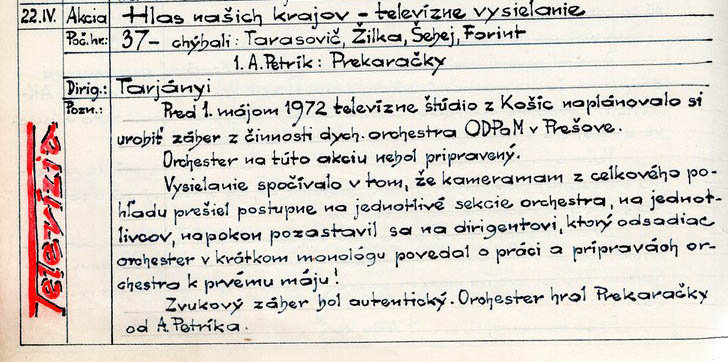 22.IV. Akcia Hlas našich krajov - televízne vysielanie
Poč.hr.: 37- chýbali: Tarasovič, Žilka, Šehej, Forint
1. A. Petrík: Prekaračky
Dirig.: Tarjányi
Pozn.: Pred 1. májom 1972 televízne štúdio z Košíc naplánovalo si
urobiť záber z činnosti dych. orchestra ODPaM v Prešove.
Orchester na túto akciu nebol pripravený.
Vysielanie spočívalo v tom, že kameramam z celkového po-
hľadu prešiel postupne na jednotlivé sekcie orchestra, na jednot-
livcov, napokon pozastavil sa na dirigentovi, ktorý odsadiac
orchester v krátkom monológu povedal o práci a prípravách or-
chestra k prvému máju!
Zvukový záber bol autentický. Orchester hral Prekaračky
od A. Petríka.
Televízia